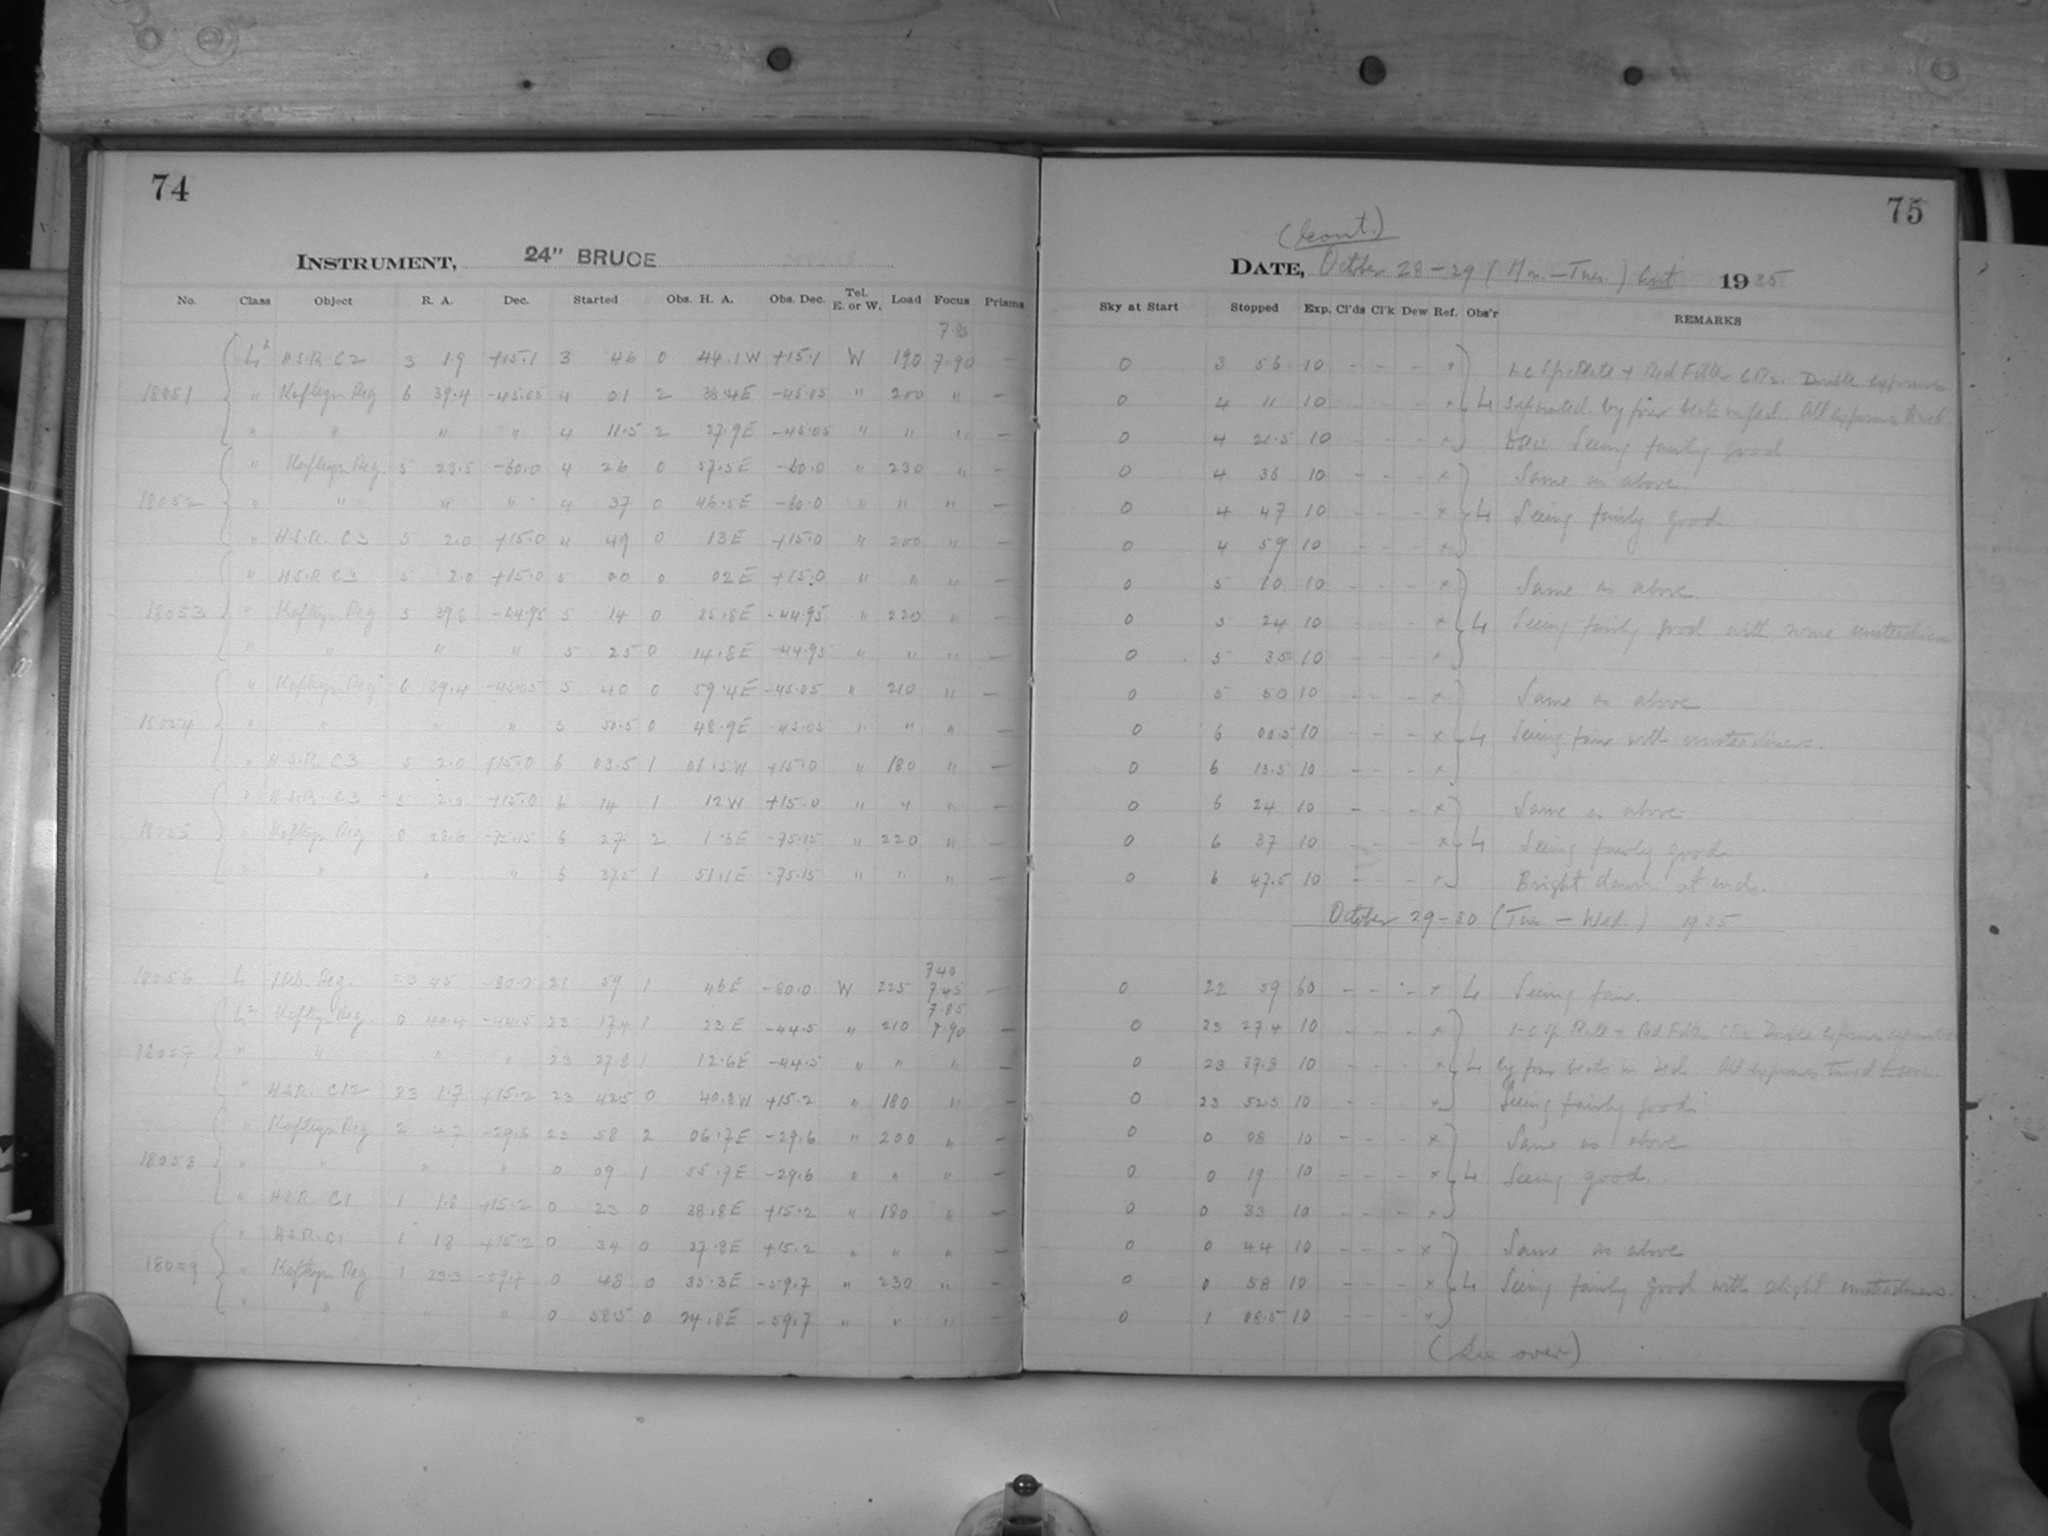 74
INSTRUMENT, 24" BRUCE
No. Class Object R. A. Dec. Started Obs. H. A. Obs. Dec. Tel. E. or W. Load Focus Prisms
7.85
L² H.S.R. C2 3 1.9 +15.1 3 46 0 44.1W +15.1 W 190 7.90 –
18051 " Kapteyn Reg 6 39.4 -45.05 4 01 2 38.4E -45.05 " 200 " –
" " " " 4 11.5 2 27.9E -45.05 " " " –
" Kapteyn Reg. 5 23.5 -60.0 4 26 0 57.5E -60.0 " 230 " –
18052 " " " " 4 37 0 46.5E -60.0 " " " –
" H.S.R. C3 5 2.0 +15.0 4 49 0 13E +15.0 " 200 " –
" H.S.R C3 5 2.0 +15.0 5 00 0 02E +15.0 " " " –
18053 " Kapteyn Reg 5 39.8 -44.95 5 14 0 25.8E -44.95 " 220 " –
" " " " 5 25 0 14.8E -44.95 " " " –
" Kapteyn Reg 6 39.4 -45.05 5 40 0 59.4E -45.05 " 210 " –
18054 " " " " 5 50.5 0 48.9E -45.05 " " " –
" H.S.R. C3 5 2.0 +15.0 6 03.5 1 01.5W +15.0 " 180 " –
" H.S.R. C3 5 2.0 +15.0 6 14 1 12W +15.0 " " " –
18055 " Kapteyn Reg 8 28.6 -75.15 6 27 2 1.6E -75.15 " 220 " –
" " " " 6 37.5 1 51.1E -75.15 " " " –
7.40
18056 L Reg. 23 45 -80.0 21 59 1 46E -80.0 W 225 7.45 –
7.85
L² Kapteyn Reg. 0 40.4 -44.5 23 17.4 1 23E -44.5 " 210 7.90 –
18057 " " " " 23 27.8 1 12.6E -44.5 " " " –
" H.S.R. C12 23 1.7 +15.2 23 42.5 0 40.8W +15.2 " 180 " –
" Kapteyn Reg 2 4.7 -29.6 23 58 2 06.7E -29.6 " 200 " –
18058 " " " " 0 09 1 55.7E -29.6 " " " –
" H.S.R. C1 1 1.8 +15.2 0 23 0 38.8E +15.2 " 180 " –
" H.S.R. C1 1 1.8 +15.2 0 34 0 27.8E +15.2 " " " –
18059 " Kapteyn Reg 1 23.3 -59.7 0 48 0 35.3E -59.7 " 230 " –
" " " " 0 58.5 0 24.8E -59.7 " " " –
75
(Cont.)
DATE, October 28-29 (Mon.-Tues.) Cont 1935
Sky at Start Stopped Exp. Cl'ds Cl'k Dew Ref. Obs'r REMARKS
0 3 56 10 - - - x 1-C Sp. Plate + Red Filter Double exposures
0 4 11 10 - - - x L separated by four beats in Dec. All exposures timed
0 4 21.5 10 - - - x Seeing fairly good
0 4 36 10 - - - x Same as above.
0 4 47 10 - - - x L Seeing fairly good
0 4 59 10 - - - x
0 5 10 10 - - - x Same as above.
0 5 24 10 - - - x L Seeing fairly good with some unsteadiness
0 5 35 10 - - - x
0 5 50 10 - - - x Same as above
0 6 00.5 10 - - - x L Seeing fair with unsteadiness.
0 6 13.5 10 - - - x
0 6 24 10 - - - x Same as above.
0 6 37 10 - - - x L Seeing fairly good
0 6 47.5 10 - - - x Bright dawn at end.
October 29-30 (Tues. - Wed.) 1935
0 22 59 60 - - - x L Seeing fair.
0 23 27.4 10 - - - x 1-C Sp. Plate + Red Filter Double exposures separated
0 23 37.8 10 - - - x L by four beats in Dec. All exposures timed
0 23 52.5 10 - - - x Seeing fairly good.
0 0 08 10 - - - x Same as above
0 0 19 10 - - - x L Seeing good.
0 0 33 10 - - - x
0 0 44 10 - - - x Same as above
0 0 58 10 - - - x L Seeing fairly good with slight unsteadiness.
0 1 08.5 10 - - - x
(See over)